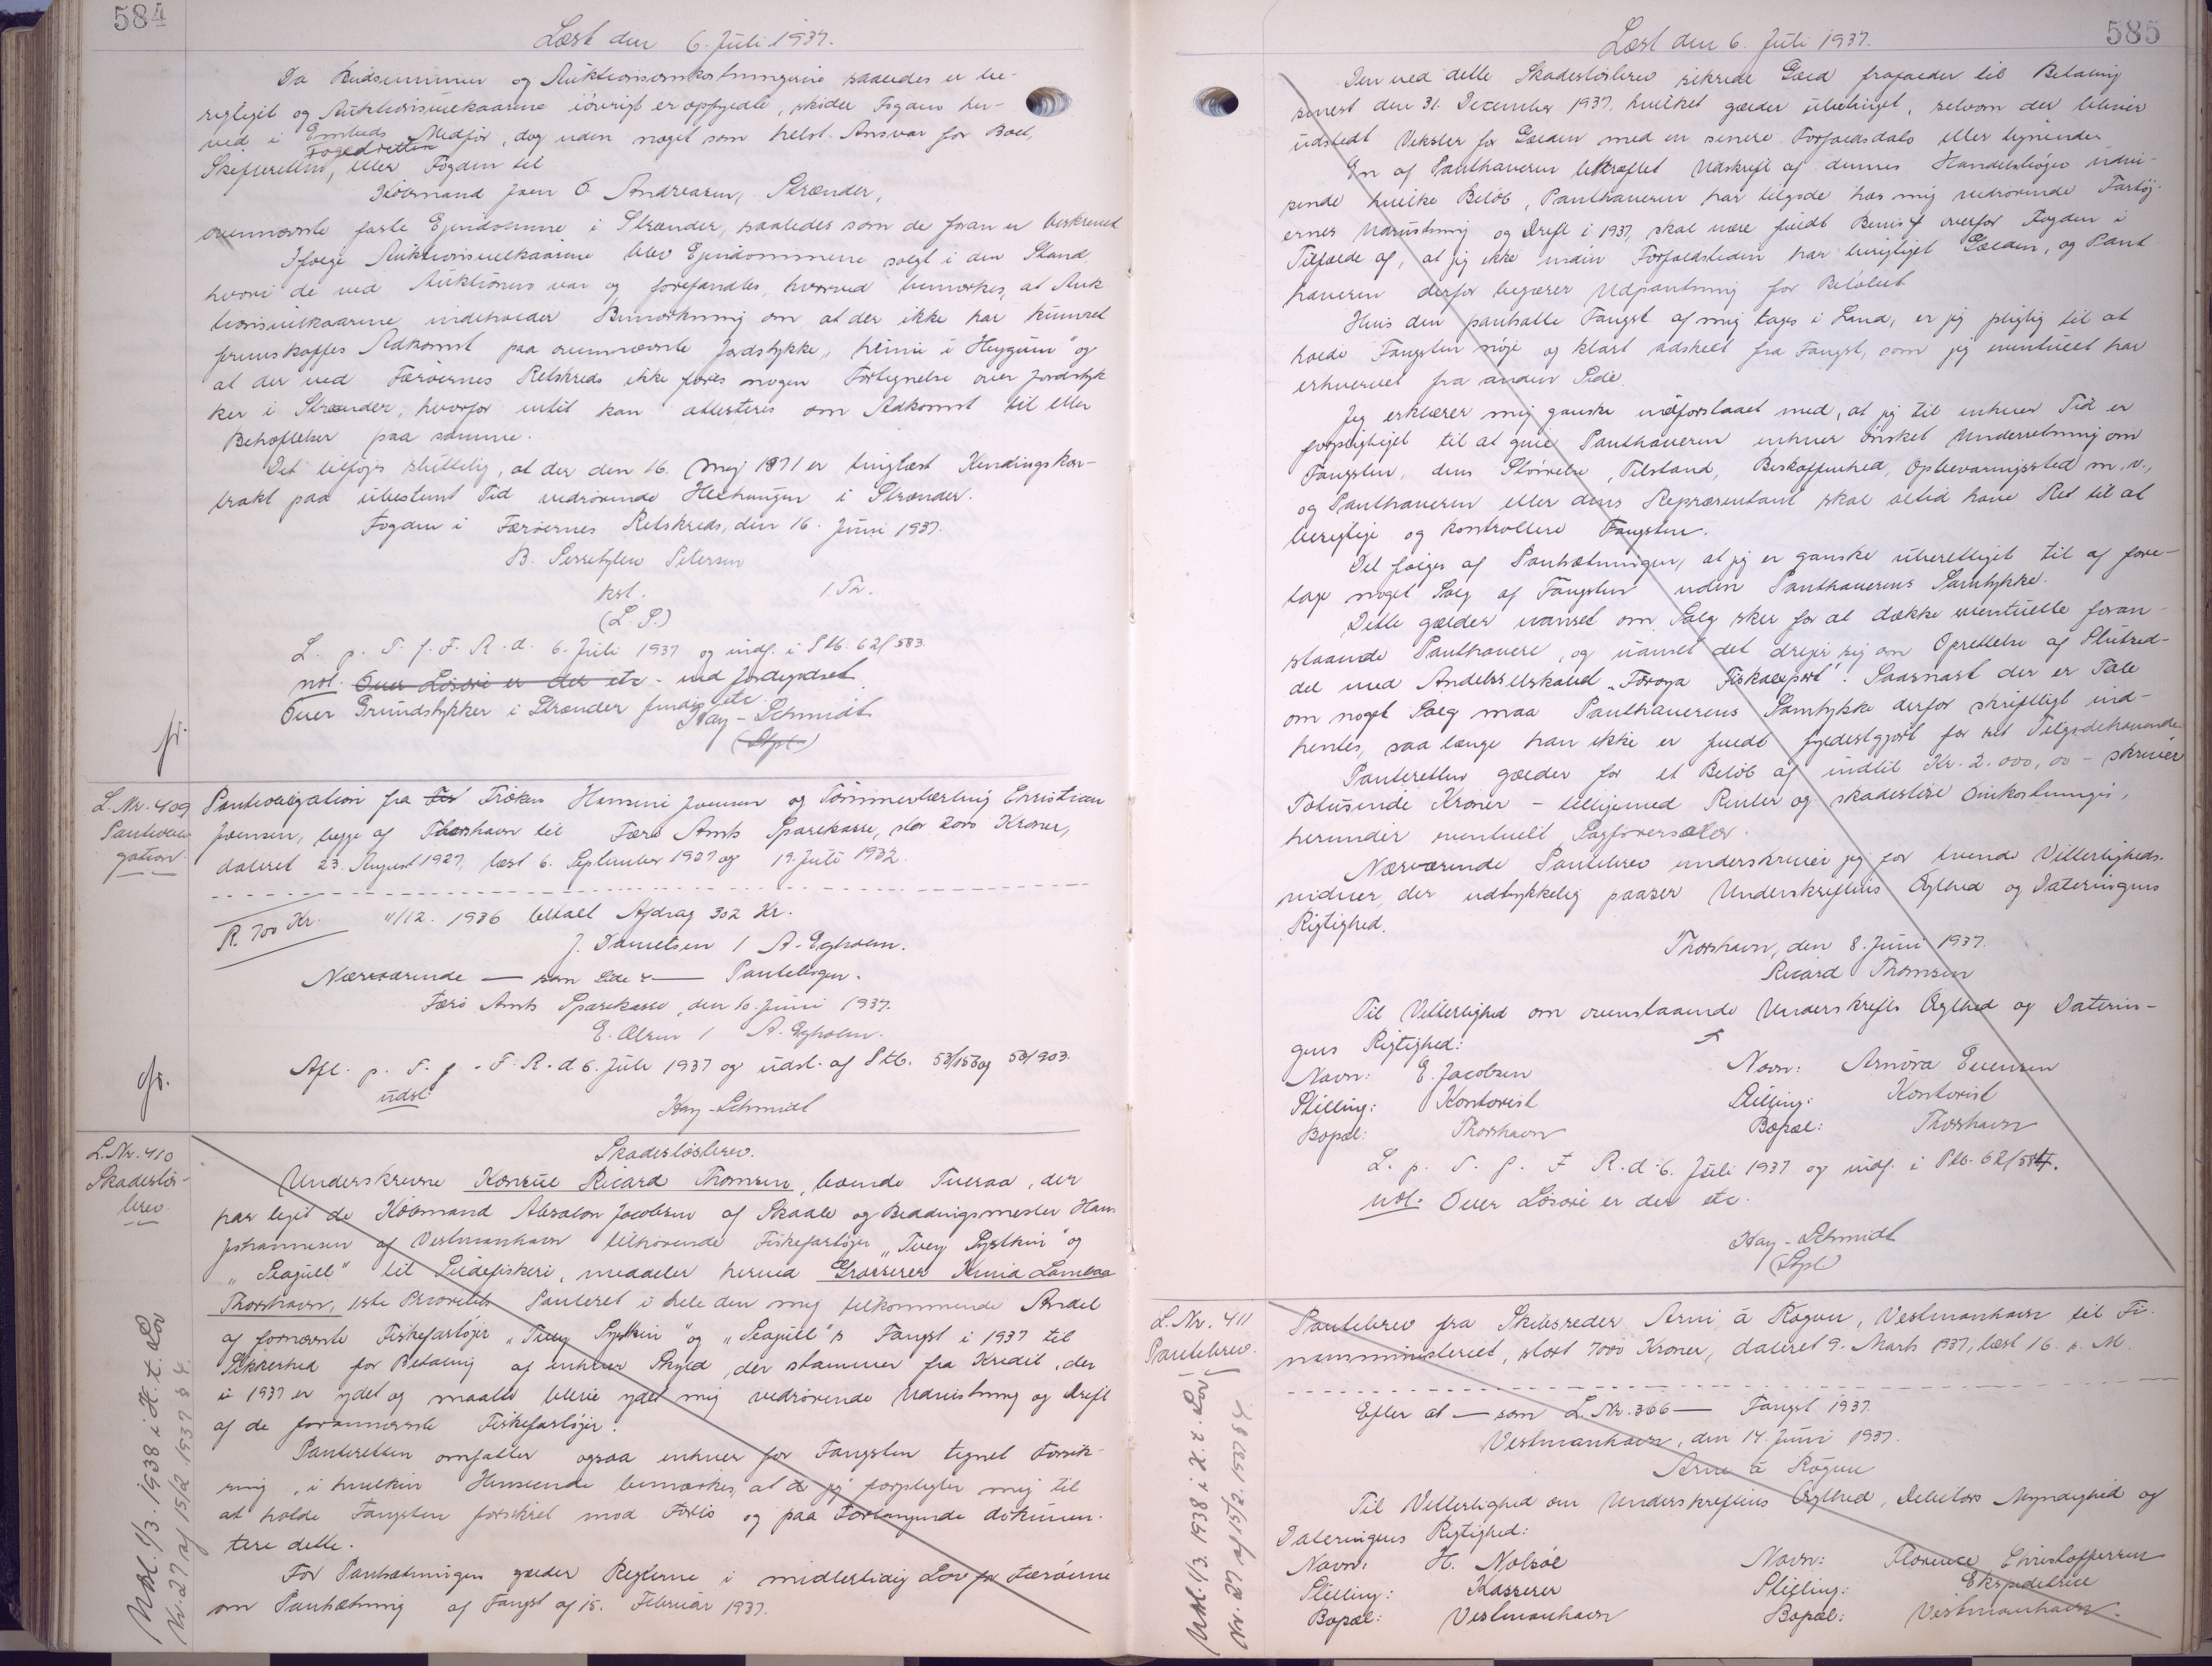 584
Læst den 6. Juli 1937.
Da Budsummen og Auktionsomkostningerne saaledes er be-
rigtiget og Auktionsvilkaarene iøvrigt er opfyldte, skøder Fogden her-
ved i Embeds Medfør, dog uden noget som helst Ansvar for Boet,
Fogedretten
Skifteretten, eller Fogden til
Købmand Joen O Andreasen, Strænder,
ovennævnte faste Ejendomme i Strænder, saaledes som de foran er beskrevet
Ifølge Auktionsvilkaarene blev Ejendommene solgt i den Stand
hvori de ved Auktionen var og forefandtes, hvorved bemærkes, at Auk
tionsvilkaarene indeholder Bemærkning om at der ikke har kunnet
fremskaffes Adkomst paa ovennævnte Jordstykke, "heimi i Heygum" og
at der ved Færøernes Retskreds ikke føres nogen Fortegnelse over Jordstyk
ker i Strænder, hvorfor intet kan attesteres om Adkomst til eller
Behæftelser paa samme.
Det tilføjes sluttelig, at der den 16. Maj 1871 er tinglæst Kendingskon-
trakt paa ubestemt Tid vedrørende i Strænder.
Fogden i Færøernes Retskreds, den 16. Juni 1937.
B. Serritzlew Petersen
kst. / Th.
(L. S.)
L. p. T. f. F. R. d. 6. Juli 1937 og indf. i Stb. 62/583
not. Over Løsøre er der etc - ved Jordejendret
Over Grundstykker i Strænder findes etc
Hay-Schmidt
(Stpl.)
fr.
L. Nr. 409
Panteobli
gation.
Panteobligation fra Frøken Hansine Joensen og Tømmerlærling Christian
Joensen, begge af Thorshavn til Færø Amts Sparekasse, stor 2000 Kroner,
dateret 23. August 1927, læst 6. September 1927 og 19. Juli 1932.
R. 700 Kr. 11/12. 1936 betalt Afdrag 302 Kr.
J. Danielsen / A. Egholm.
Nærværende — som Side 2 — Pantebogen.
Færø Amts Sparekasse, den 10. Juni 1937.
E. Olsen / A. Egholm.
Afl. p. T. f. F. R. d 6. Juli 1937 og udsl. af Stb. 53/156 og 53/903.
udsl.
Hay-Schmidt
fr.
L. Nr. 410
Skadesløs-
brev.
Skadesløsbrev.
Underskrevne Konsul Ricard Thomsen, boende Tveraa, der
har lejet de Købmand Absalon Jacobsen af Skaale og Beddingsmester Hans
Johannesen af Vestmanhavn tilhørende Fiskefartøjer "Tvey Systkin" og
"Seagull" til Sildefiskeri, meddeler herved Grosserer Kruia Lambaa
Thorshavn, 1ste Prioritets Panteret i hele den mig tilkommende Andel
af fornævnte Fiskefartøjer "Tvey Systkin" og "Seagull"s Fangst i 1937 til
Sikkerhed for Betaling af enhver Skyld, der stammer fra Kredit, der
i 1937 er ydet og maatte blive ydet mig vedrørende Udrustning og Drift
af de forannævnte Fiskefartøjer.
Panteretten omfatter ogsaa enhver for Fangsten tegnet Forsik-
ring, i hvilken Henseende bemærkes, at jeg forpligter mig til
at holde Fangsten forsikret mod Forlis og paa Forlangende dokumen-
tere dette.
For Pantsætningen gælder Reglerne i midlertidig Lov for Færøerne
om Pantsætning af Fangst af 15. Februar 1937.
Udsl. 1/3. 1938 i H. t. Lov
Nr. 27 af 15/2. 1937 § 4.
585
Læst den 6. Juli 1937.
Den ved dette Skadesløsbrev sikrede Gæld forfalder til Betaling
senest den 31. December 1937, hvilket gælder ubetinget, selvom der bliver
udstedt Veksler for Gælden med en senere Forfaldsdato eller lignende
En af Panthaveren bekræftet Udskrift af dennes Handelsbøger udvi-
sende hvilke Beløb, Panthaveren har tilgode hos mig vedrørende Fartøj-
ernes Udrustning og Drift i 1937, skal være fuldt Bevis overfor Fogden i
Tilfælde af, at jeg ikke inden Forfaldstiden har berigtiget Gælden, og Pant
haveren derfor begærer Udpantning for Beløbet
Hvis den pantsatte Fangst af mig tages i Land, er jeg pligtig til at
holde Fangsten nøje og klart adskilt fra Fangst, som jeg eventuelt har
erhvervet fra anden Side.
Jeg erklærer mig ganske indforstaaet med, at jeg til enhver Tid er
forpligtiget til at give Panthaveren enhver ønsket Underretning om
Fangsten, dens Størrelse, Tilstand, Beskaffenhed, Opbevaringssted m. v.,
og Panthaveren eller dens Repræsentant skal altid have Ret til at
besigtige og kontrollere Fangsten.
Det følger af Pantsætningen, at jeg er ganske uberettiget til af fore-
tage noget Salg af Fangsten uden Panthaverens Samtykke.
Dette gælder uanset om Salg sker for at dække eventuelle foran-
staaende Panthavere, og uanset det drejer sig om Oprettelse af Slutsed-
del med Andelsselskabet "Føroya Fiskaexport". Saasnart der er Tale
om noget Salg maa Panthaverens Samtykke derfor skriftligt ind-
hentes, saa længe han ikke er fuldt fyldestgjort for sit Tilgodehavende
Panteretten gælder for et Beløb af indtil Kr. 2.000,00 - skriver
Totusinde Kroner - tilligemed Renter og skadesløse Omkostninger,
herunder eventuelt Sagførersalær.
Nærværende Pantebrev underskriver jeg for tvende Vitterligheds-
vidner, der udtrykkelig paaser Underskriftens Ægthed og Dateringens
Rigtighed.
Thorshavn, den 8. Juni 1937.
Ricard Thomsen
Til Vitterlighed om ovenstaaende Underskrifts Ægthed og Daterin-
gens Rigtighed:
Navn: E. Jacobsen Navn: Arnóra Evensen
Stilling: Kontorist Stilling: Kontorist
Bopæl: Thorshavn Bopæl: Thorshavn
L. p. T. f. F R. d. 6. Juli 1937 og indf. i Ptb. 62/584.
not. Over Løsøre er der etc.
Hay-Schmidt
(Stpl)
L. Nr. 411
Pantebrev.
Pantebrev fra Skibsreder Arni á Røgvu, Vestmanhavn til Fi-
nansministeriet, stort 7000 Kroner, dateret 9. Marts 1937, læst 16. s. M.
Efter at — som L. Nr. 366 — Fangst 1937.
Vestmanhavn, den 14. Juni 1937.
Arni á Røgvu
Til Vitterlighed om Underskriftens Ægthed, Debitors Myndighed og
Dateringens Rigtighed:
Navn: H. Nolsøe Navn: Florence Christoffersen
Stilling: Kasserer Stilling: Ekspeditrice
Bopæl: Vestmanhavn Bopæl: Vestmanhavn.
Udsl. 1/3. 1938 i H. t. Lov
Nr. 27 af 15/2. 1937 § 4.